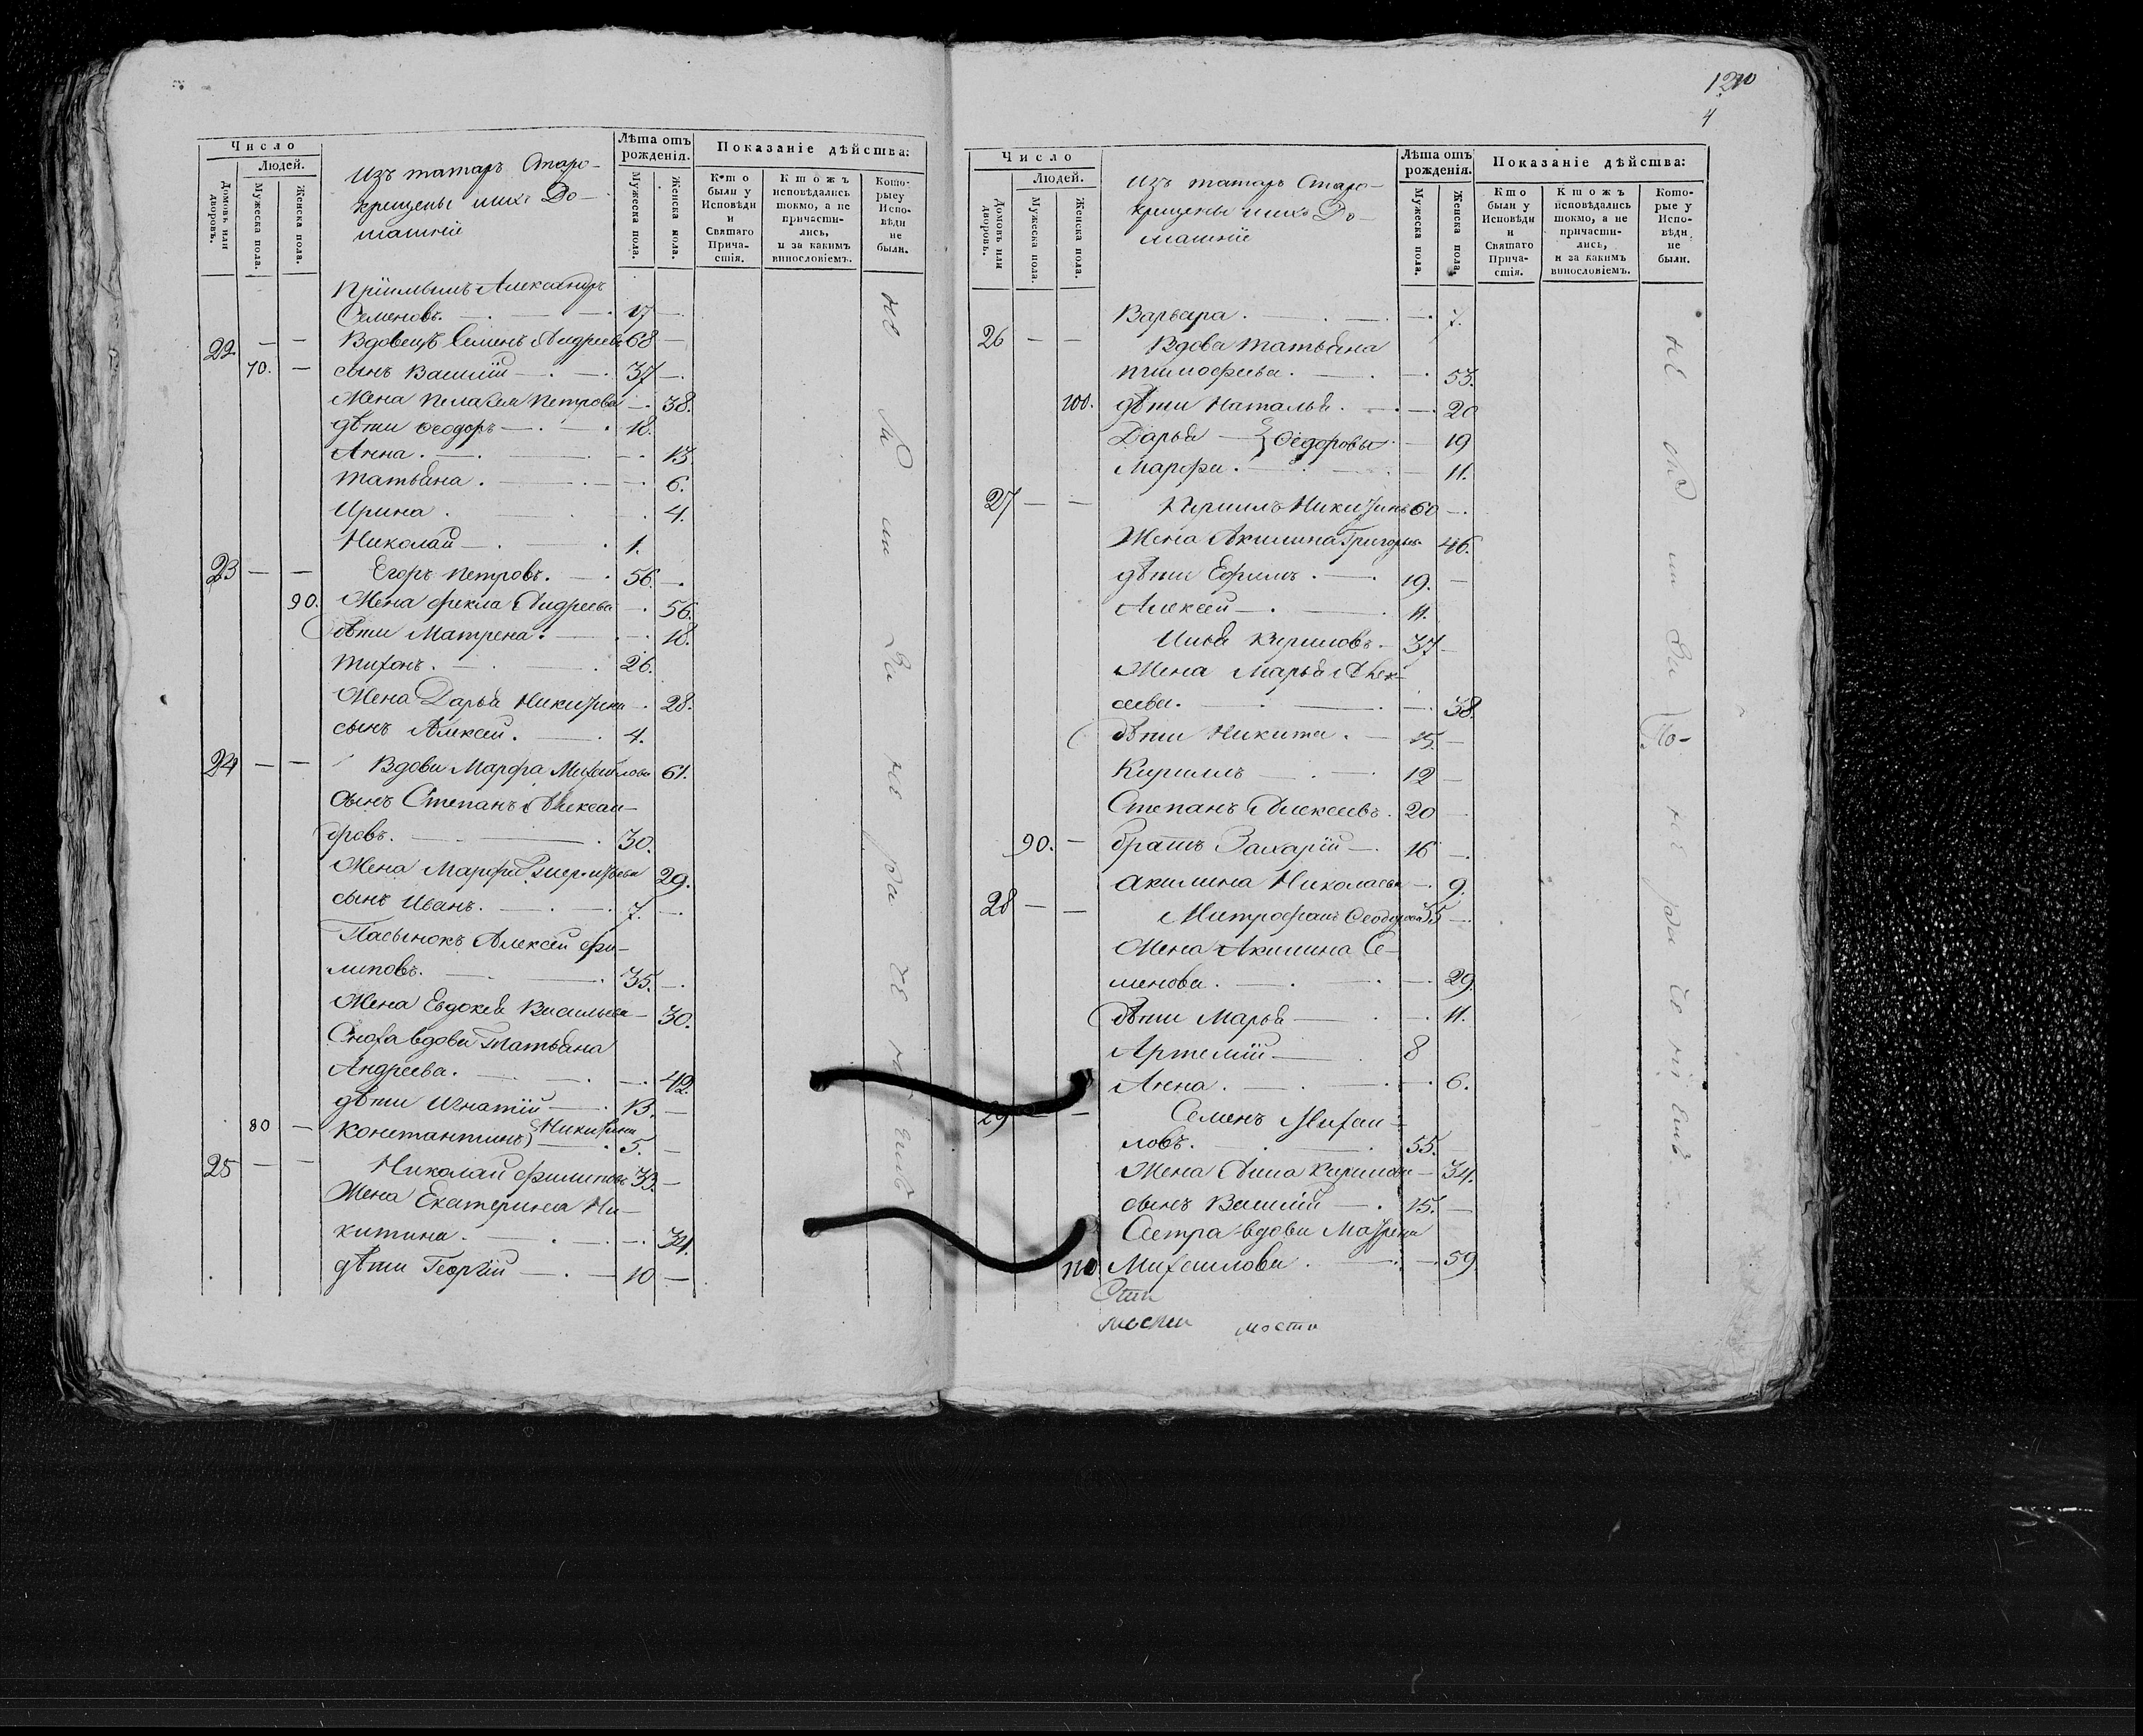 Число
Людей.
Домовъ или дворовъ.
Мужеска пола.
Женска пола.
Изъ татаръ Старо-
крещены ихъ До-
машніе
Лѣта отъ рожденія.
Мужеска пола.
Женска пола.
Показаніе дѣйства:
Кто были у Исповѣди и Святаго Прича-стія.
Ктожъ исповѣдались токмо, а не причасти-лись, и за какимъ винословіемъ.
Кото-рые у Испо-вѣди не были.
Александръ
Семеновъ. 17
22 Вдовецъ Семенъ Андреевъ 68
70. сынъ Василій 37
Жена Пелагея Петрова 38.
дѣти Ѳеодоръ 18.
Анна. 13
Татьяна. 6.
Ирина. 4.
Николай 1.
23 Егоръ Петровъ. 56.
90. Жена Фекла Андреева 56.
дѣти Матрена. 18.
Тихонъ. 26.
Жена Дарья Никитина 28.
сынъ Алексей. 4.
24 Вдова Марфа Михайлова 61.
сынъ Степанъ Алексан-
дровъ. 30.
Жена Марфа 29.
сынъ Иванъ. 7.
Пасынокъ Алексей Фи-
липовъ. 35.
Жена Евдокея Васильева 30.
Сноха вдова Татьяна
Андреева. 42
дѣти Игнатій 13.
80 Константинъ Никитины 5.
25 Николай Филиповъ 33.
Жена Екатерина Ни-
китина. 34.
дѣти Георгій 10
1210
4
Число
Людей.
Домовъ или дворовъ.
Мужеска пола.
Женска пола.
Изъ татаръ Старо-
крещены ихъ До-
машніе
Лѣта отъ рожденія.
Мужеска пола.
Женска пола.
Показаніе дѣйства:
Кто были у Исповѣди и Святаго Прича-стія.
Ктожъ исповѣдались токмо, а не причасти-лись, и за какимъ винословіемъ.
Кото-рые у Испо-вѣди не были.
Варвара. 7.
26 Вдова Татьяна
Тимофеева. 53.
100. дѣти Наталья. 20
Дарья Ѳедоровы 19
Марфа. 11.
27 Кирилъ Никитинъ 60
Жена Акилина Григорьева 46.
дѣти Ефимъ. 19.
Алексей 11.
Илья Кириловъ. 37
Жена Марья Алек-
сеева. 38.
дѣти Никита. 15.
Кирилъ 12
Степанъ Алексеевъ. 20
90. братъ Захарій 16
Акилина Николаева 9.
28 Митрофанъ Ѳеодоровъ 35
Жена Акилина Се-
менова. 29.
дѣти Марья 11.
Артемій 8
Анна. 6.
29 Семенъ Михаи-
ловъ. 55.
Жена Анна Кирилова 34.
сынъ Василій 15.
Сестра вдова Матрена
110 Михаилова. 59